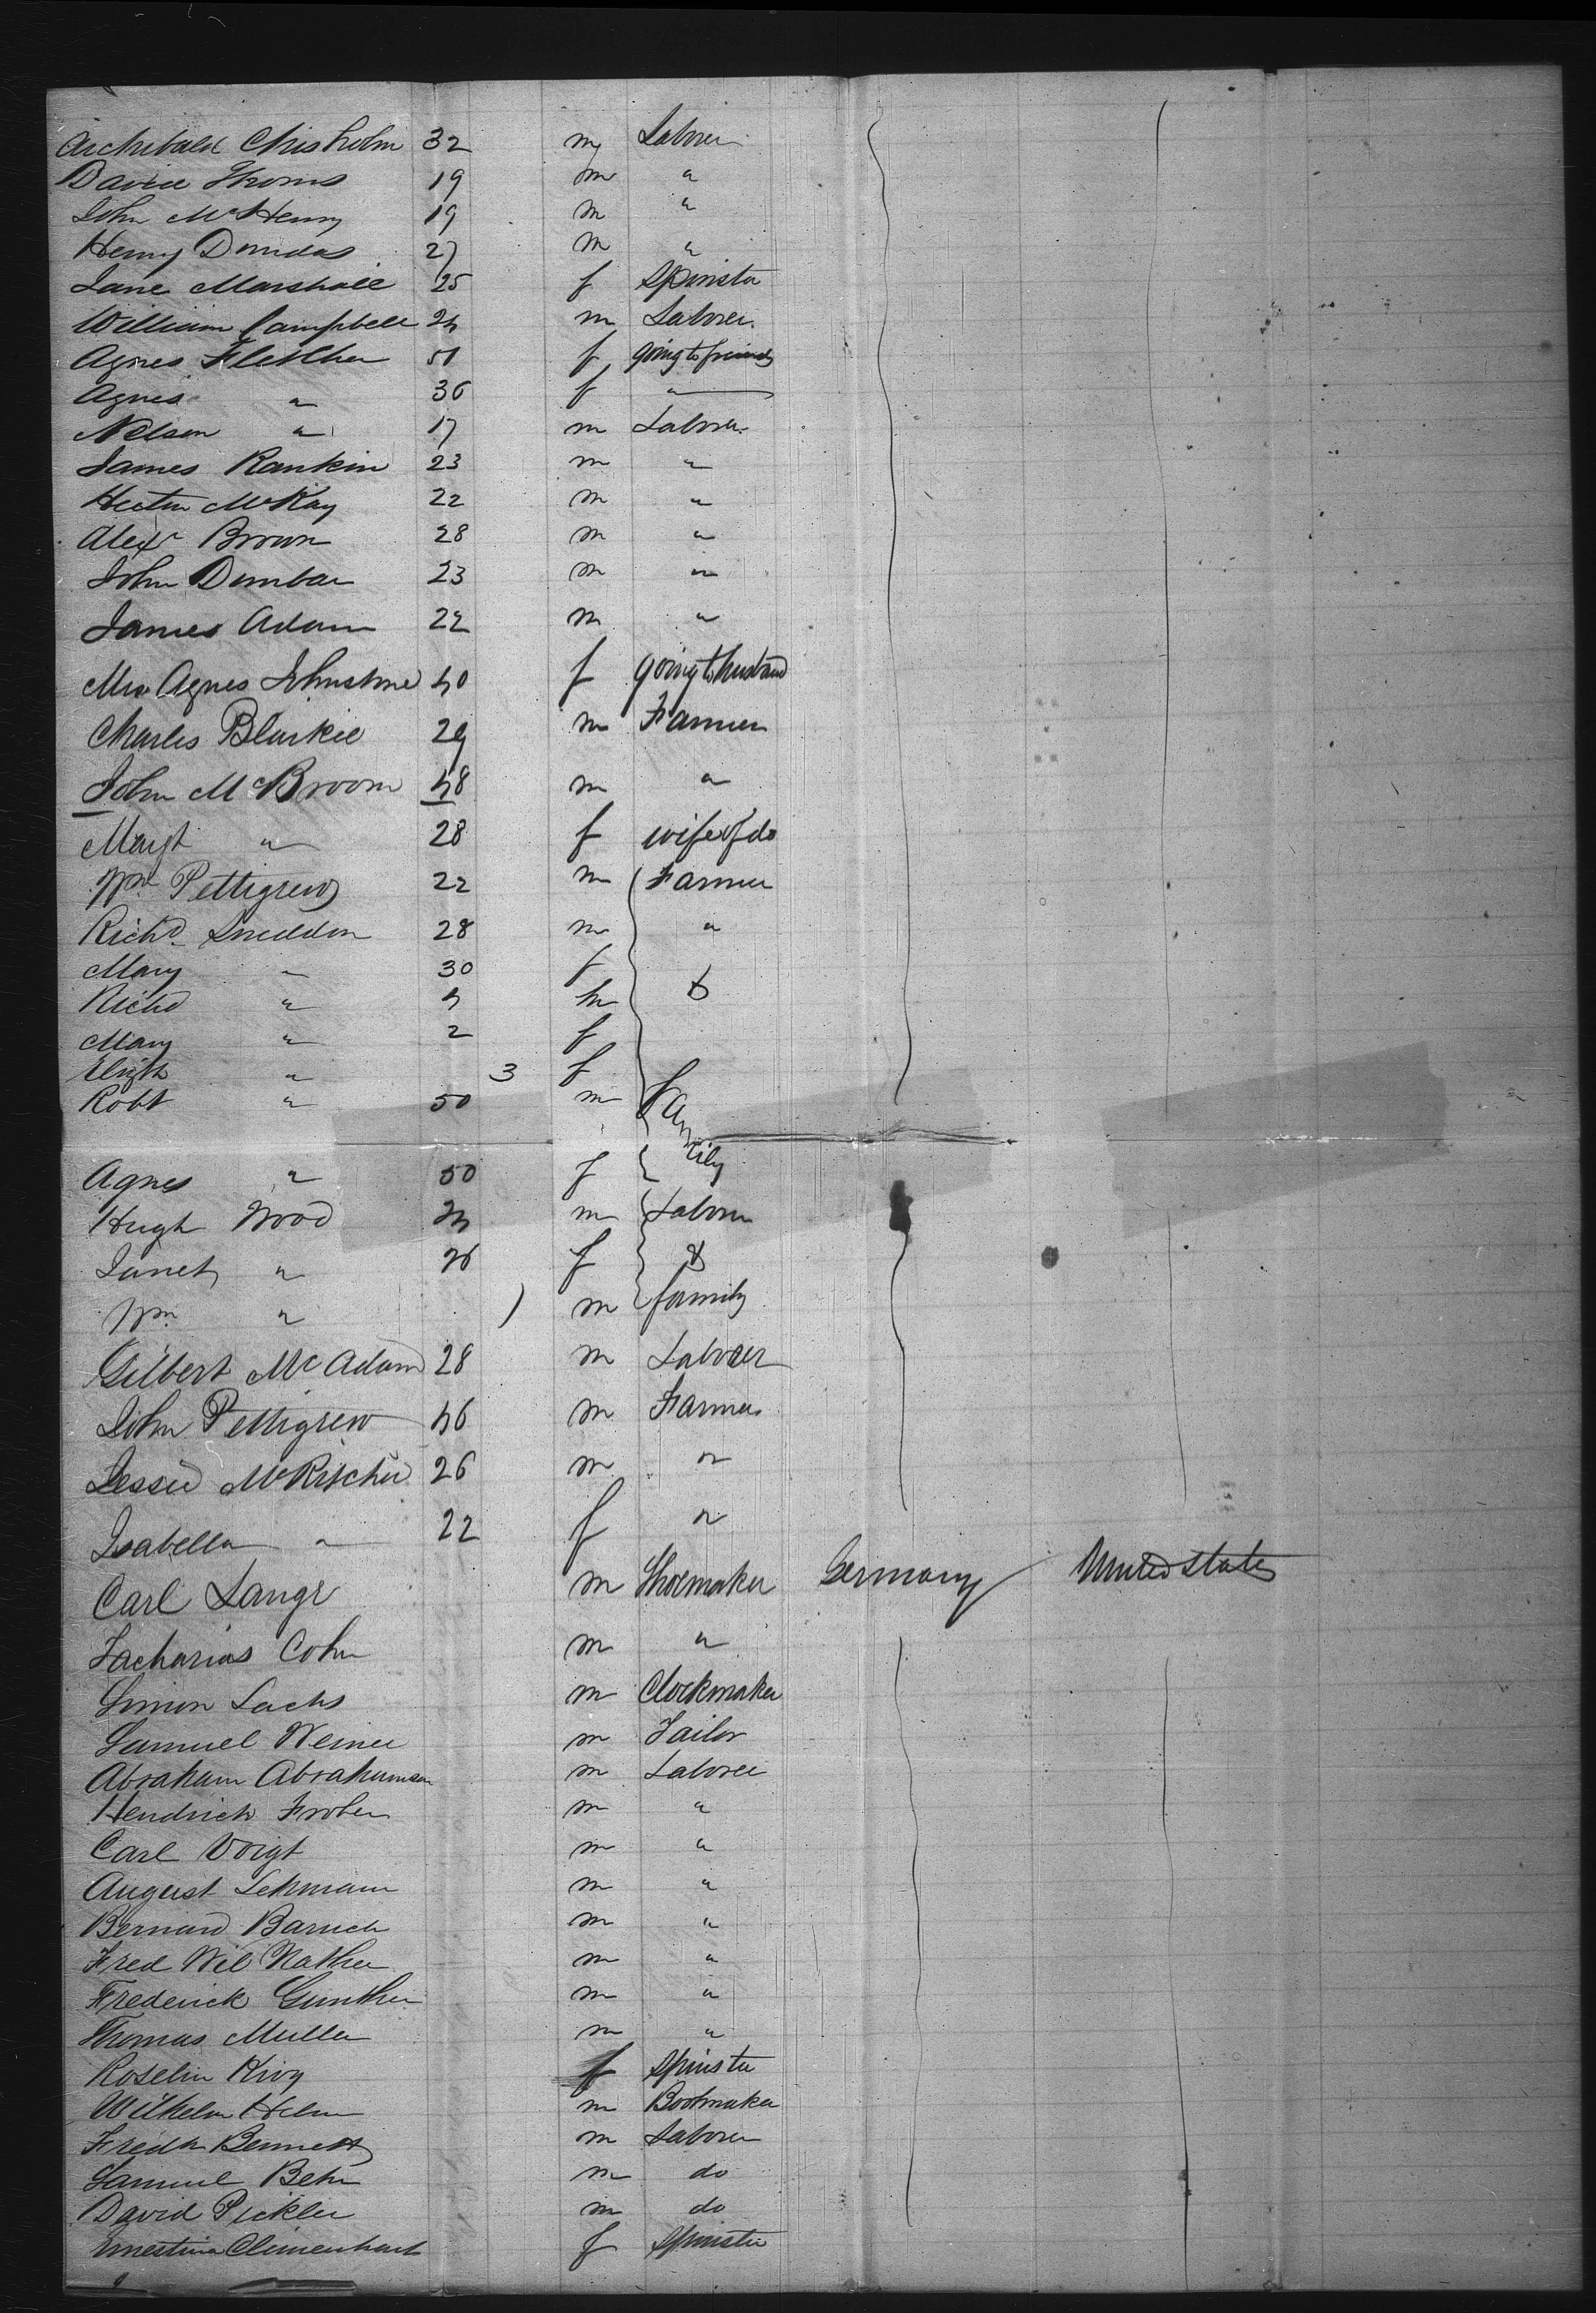 Archibald Chisholm 32 m Laborer
David Thoms 19 m "
John McHenry 19 m "
Henry Dundas 27 m "
Jane Marshall 25 f Spinster
William Campbell 24 m Laborer
Agnes Fletcher 51 f going to friends
Agnes " 36 f "
Nelson " 17 m Laborer
James Rankin 23 m "
Hector McKay 22 m "
Alexr Brown 28 m "
John Dunbar 23 m "
James Adam 22 m "
Mrs Agnes Johnstone 40 f going to husband
Charles Blaikie 29 m Farmer
John McBroom 48 m "
Margt " 28 f wife of do
Wm Pettigrew 22 m Farmer
Richd Sneddon 28 m "
Mary " 30 f &
Richd " 4 m
Mary " 2 f
Elizth " 3 f
Robt " 50 m Family
Agnes " 50 f
Hugh Wood 24 m Laborer
Janet " 26 f &
Wm " 1 m family
Gilbert McAdam 28 m Laborer
John Pettigrew 46 m Farmer
Jessie McRitchie 26 m "
Isabella " 22 f "
Carl Lange m Shoemaker Germany United States
Zacharias Cohn m "
Simon Sachs m Clockmaker
Samuel Weiner m Tailor
Abraham Abrahamson m Laborer
Hendrick Froben m "
Carl Voigt m "
August Lehmann m "
Bernard Baruch m "
Fred Wil Nather m "
Frederick Gunther m "
Thomas Muller m "
Roselin f Spinster
Wilhelm Helm m Bootmaker
Fredk Bennett m Laborer
Samuel Behr m do
David Pickler m do
Ernestina f Spinster